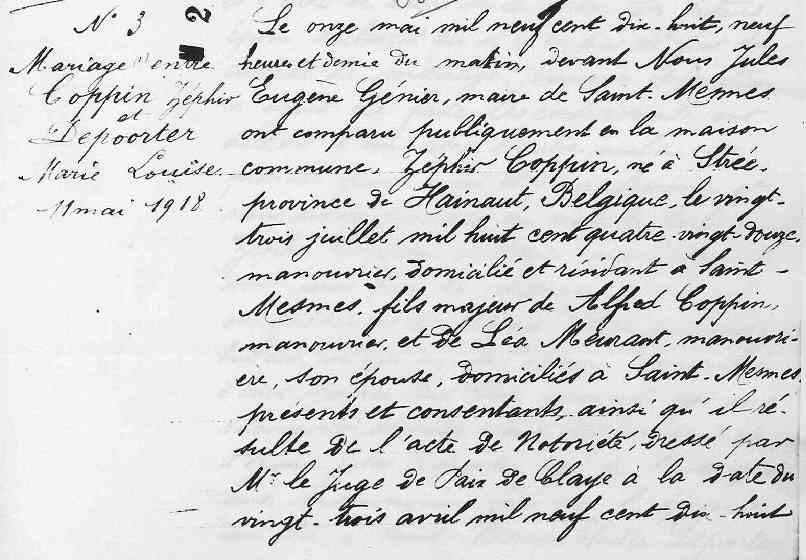 N° 3
2
Mariage entre
Coppin Zéphir
et
Depoorter
Marie Louise
11 mai 1918
Le onze mai mil neuf cent dix-huit, neuf
heures et demie du matin, devant Nous Jules
Eugène Génier, maire de Saint-Mesmes
ont comparu publiquement en la maison
commune, Zéphir Coppin, né à Strée,
province de Hainaut, Belgique, le vingt-
trois juillet mil huit cent quatre-vingt-douze,
manouvrier, domicilié et résidant à Saint-
Mesmes, fils majeur de Alfred Coppin,
manouvrier, et de Léa Meurant, manouvri-
ère, son épouse, domiciliés à Saint-Mesmes,
présents et consentants, ainsi qu'il ré-
sulte de l'acte de Notoriété, dressé par
Mr le Juge de Paix de Claye à la date du
vingt-trois avril mil neuf cent dix-huit